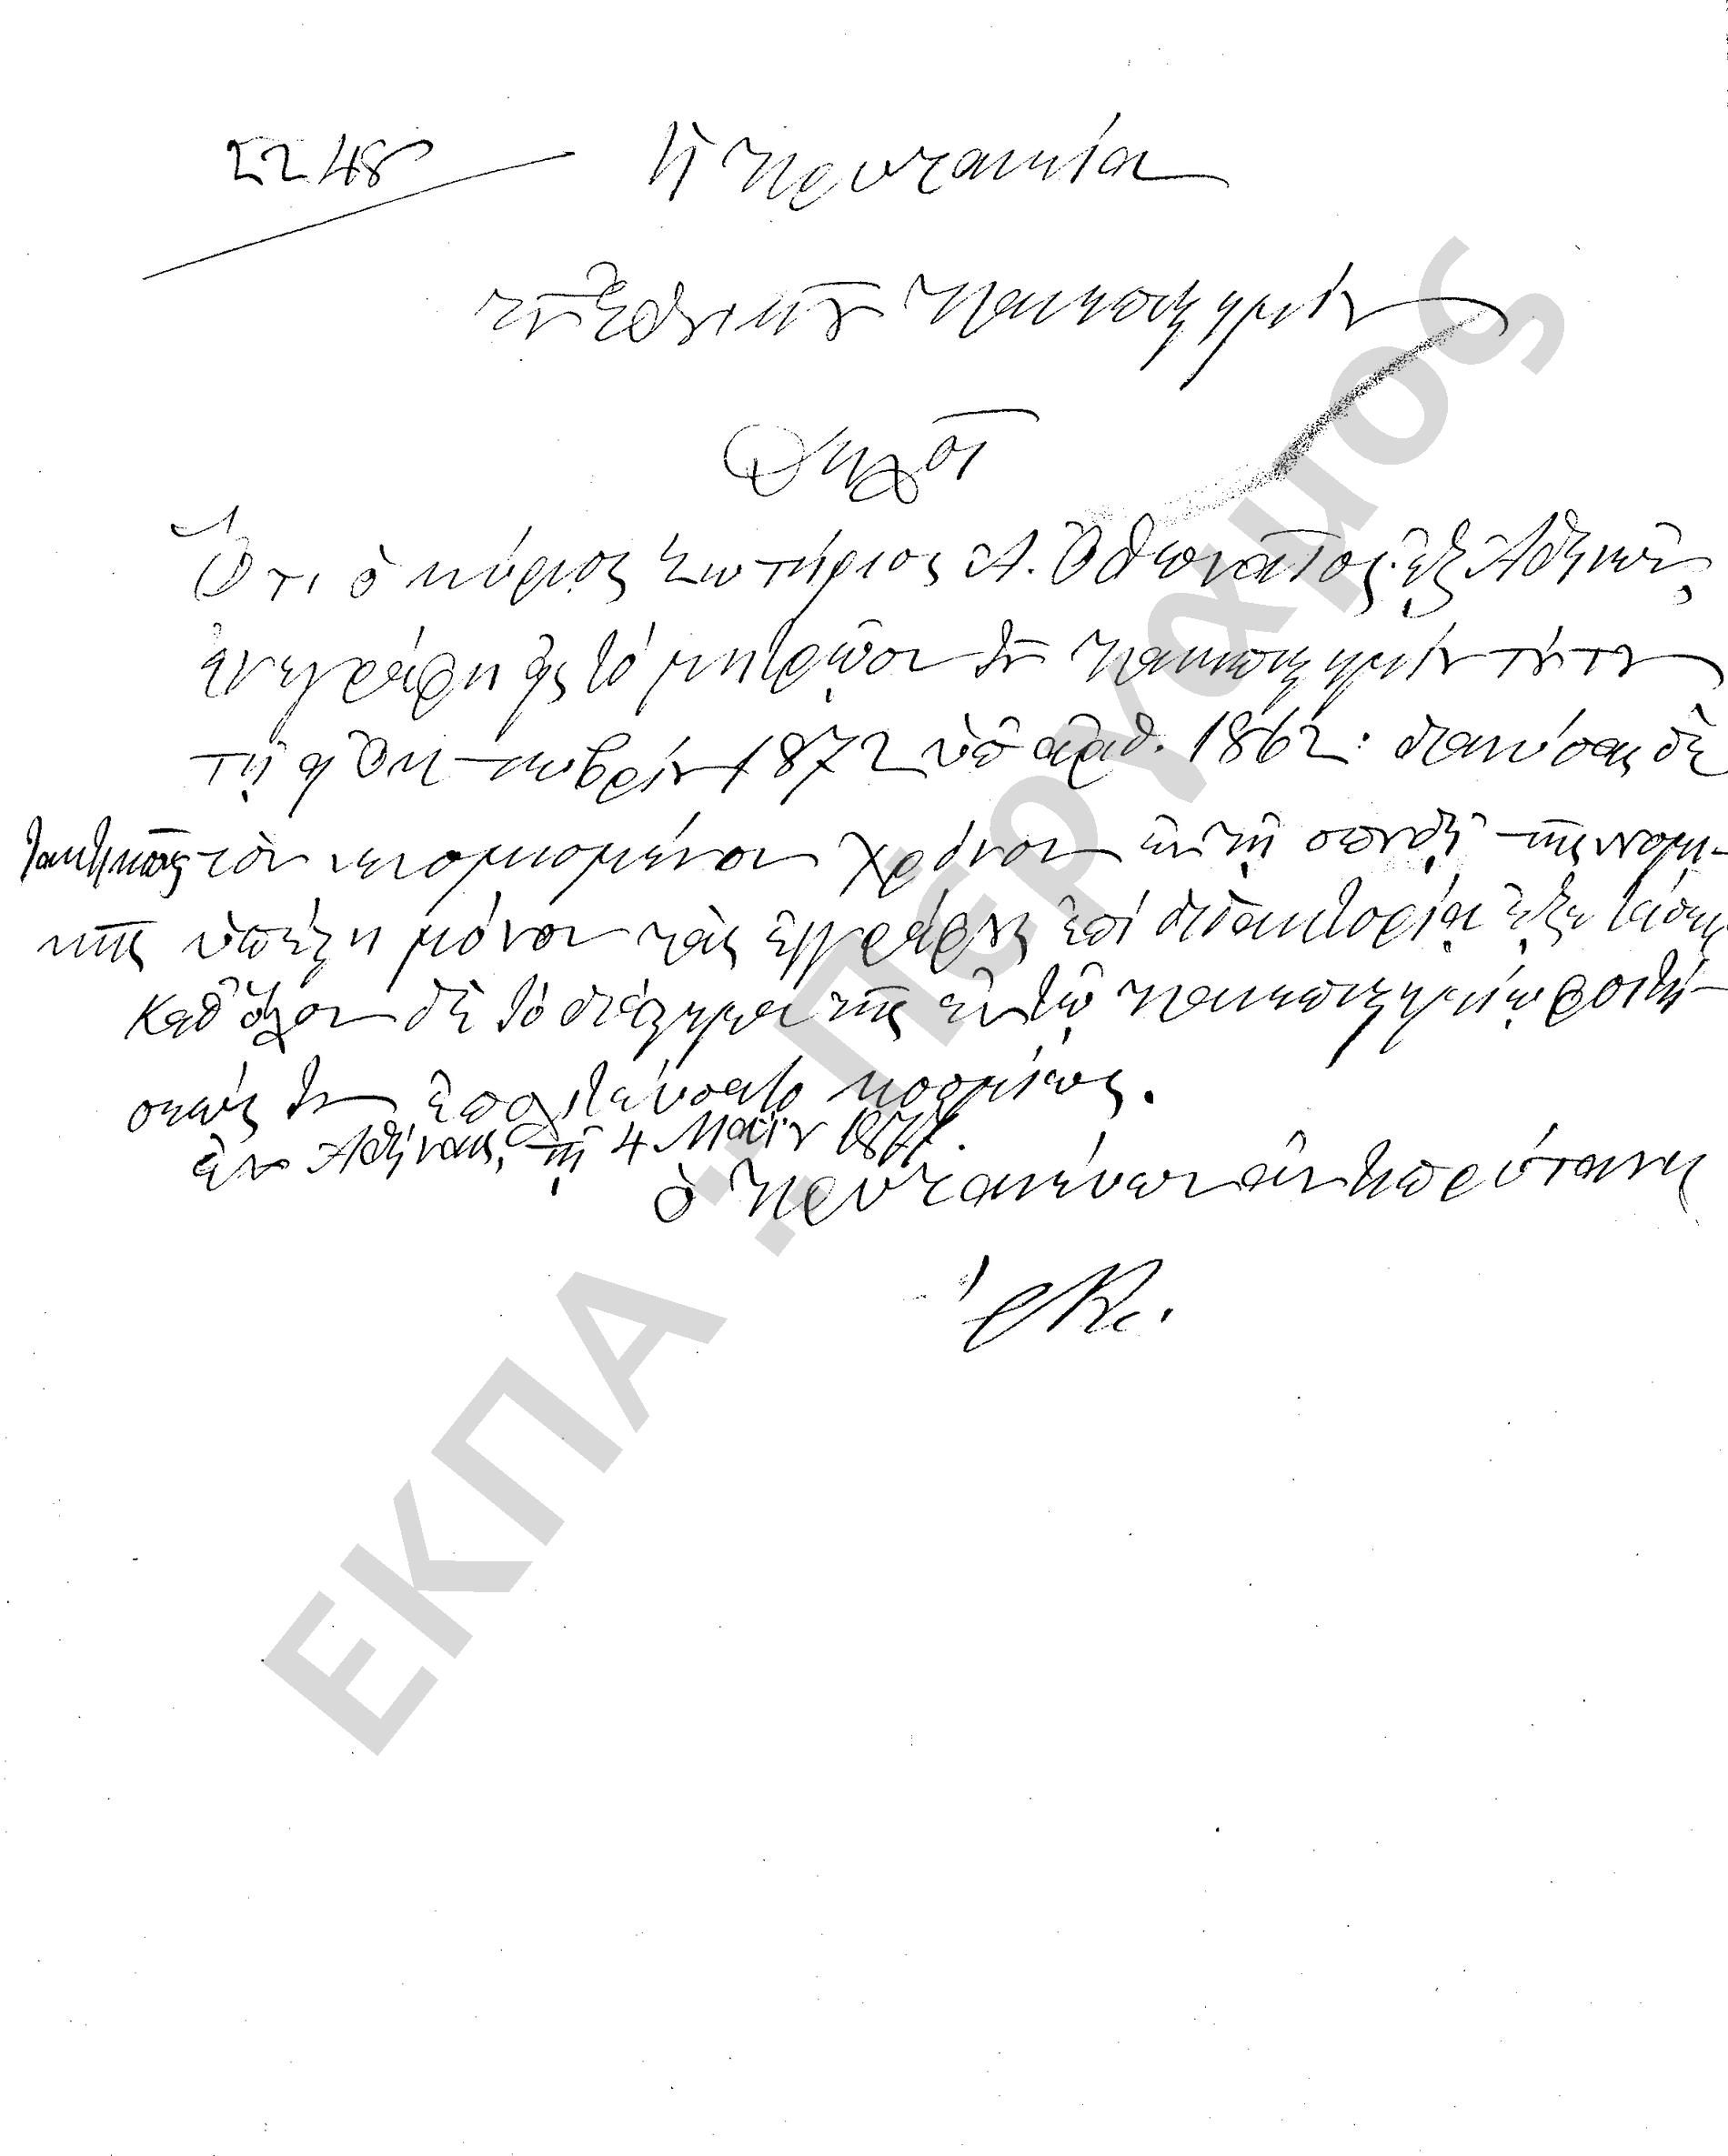 2248 Ἡ Πρυτανεία
τοῦ Ἐθνικοῦ Πανεπιστημίου
Δηλοῖ
Ὅτι ὁ κύριος Σωτήριος Α. Ὀθωναῖος ἐξ Ἀθηνῶν
ἐνεγράφη εἰς τό μητρῷον τοῦ Πανεπιστημίου τούτου
τῇ Ὀκτωβρίου 1872 ὑπ' ἀριθ. 1862: διανύσας δὲ
τακτικῶς τὸν νενομισμένον χρόνον ἐν τῇ σπουδῇ τῆς νομι-
κῆς ὑπέστη μόνον τὰς ἐγγράφους ἐπί διδακτορίᾳ ἐξετάσεις
καθ' ὅλον δὲ τό διάστημα τῆς ἐν τῷ Πανεπιστημίῳ φοιτή-
σεώς του ἐπολιτεύσατο κοσμίως.
ἐν Ἀθήναις, τῇ 4 Μαΐου 1877.
ὁ Πρυτανεύων ἀντιπρύτανις
ΕΚΠΑ "ΠΕΡΓΑΜΟΣ